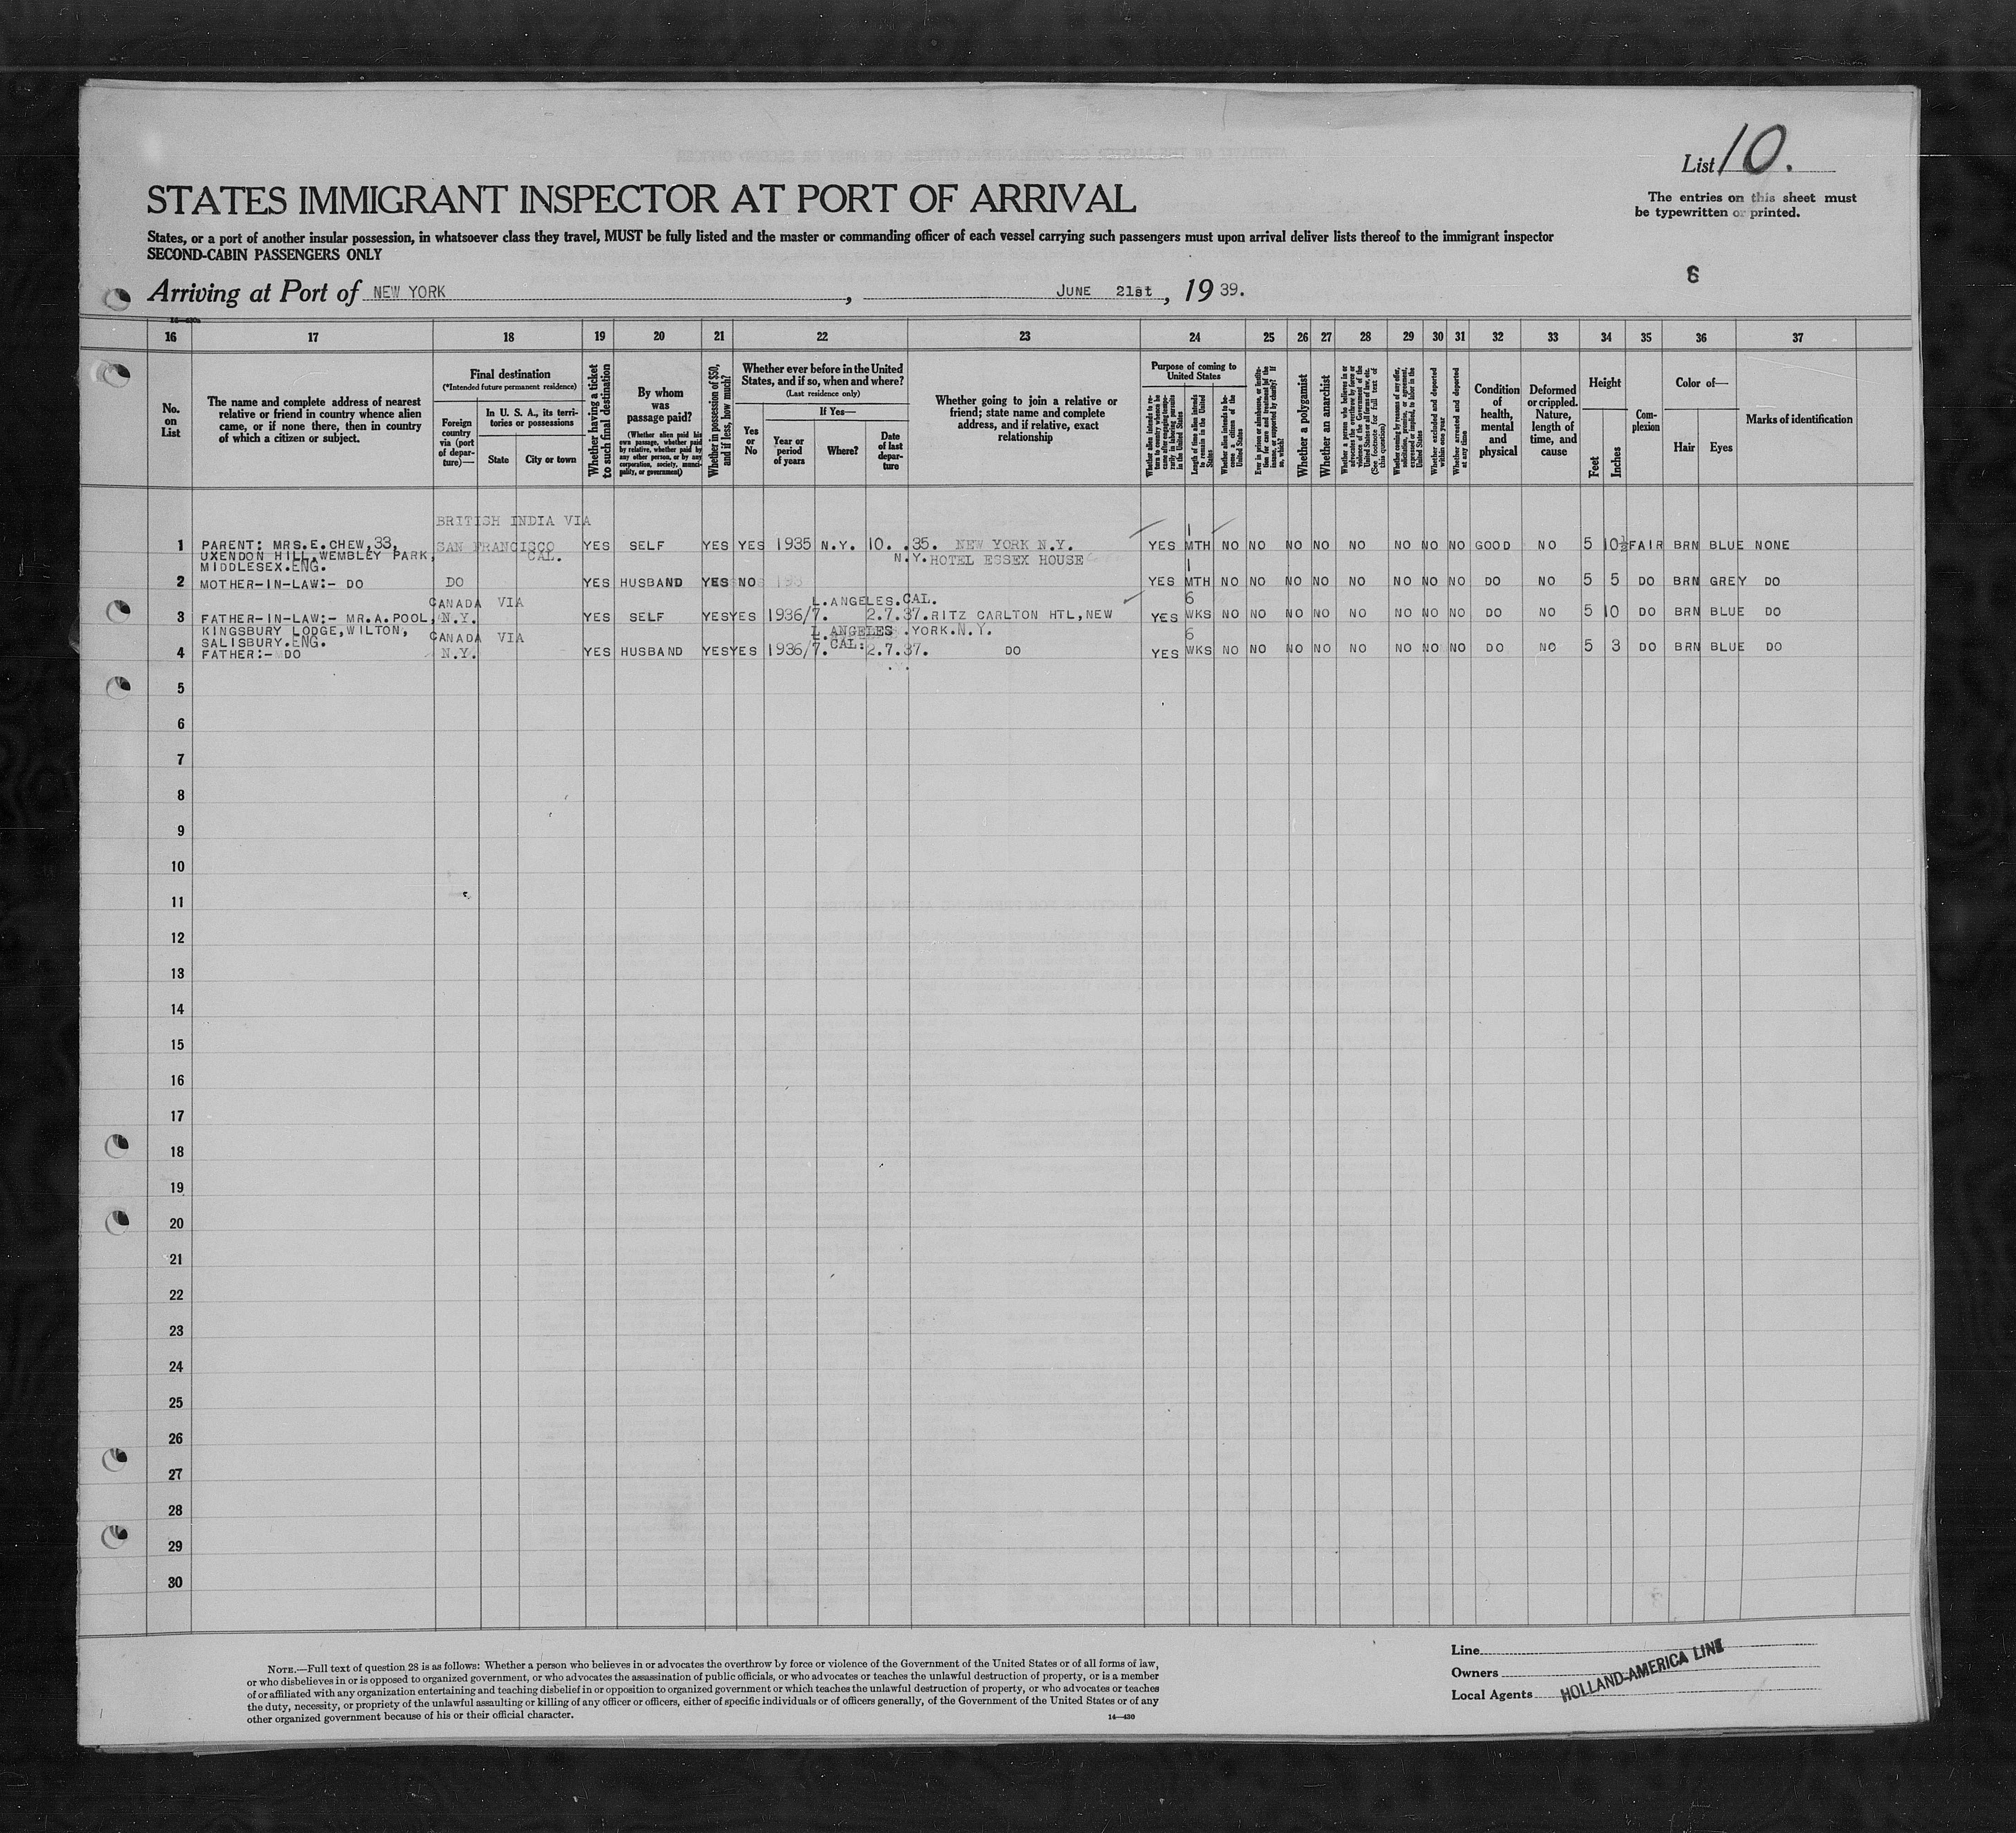 List 10.
The entries on this sheet must
be typewritten or printed.
STATES IMMIGRANT INSPECTOR AT PORT OF ARRIVAL
States, or a port of another insular possession, in whatsoever class they travel, MUST be fully listed and the master or commanding officer of each vessel carrying such passengers must upon arrival deliver lists thereof to the immigrant inspector
SECOND-CABIN PASSENGERS ONLY
6
Arriving at Port of NEW YORK, JUNE 21st, 19 39.
16 17 18 19 20 21 22 23 24 25 26 27 28 29 30 31 32 33 34 35 36 37
No. on List
The name and complete address of nearest relative or friend in country whence alien came, or if none there, then in country of which a citizen or subject.
Final destination
(*Intended future permanent residence)
Foreign country via (port of departure)—
In U. S. A., its territories or possessions
State
City or town
Whether having a ticket to such final destination
By whom was passage paid?
(Whether alien paid his own passage, whether paid by relative, whether paid by any other person, or by any corporation, society, municipality, or government)
Whether in possession of $50, and if less, how much?
Whether ever before in the United States, and if so, when and where?
(Last residence only)
Yes or No
If Yes—
Year or period of years
Where?
Date of last departure
Whether going to join a relative or friend; state name and complete address, and if relative, exact relationship
Purpose of coming to United States
Whether alien intends to return to country whence he came after engaging temporarily in laboring pursuits in the United States
Length of time alien intends to remain in the United States
Whether alien intends to become a citizen of the United States
Ever in prison or almshouse, or institution for care and treatment of the insane, or supported by charity? If so, which?
Whether a polygamist
Whether an anarchist
Whether a person who believes in or advocates the overthrow by force or violence of the Government of the United States or all forms of law, etc. (See footnote for full text of this question)
Whether coming by reason of any offer, solicitation, promise, or agreement, expressed or implied, to labor in the United States
Whether excluded and deported within one year
Whether arrested and deported at any time
Condition of health, mental and physical
Deformed or crippled. Nature, length of time, and cause
Height
Feet
Inches
Complexion
Color of—
Hair
Eyes
Marks of identification
BRITISH INDIA VIA
1 PARENT: MRS.E.CHEW,33, SAN FRANCISCO YES SELF YES YES 1935 N.Y. 10. .35. NEW YORK N.Y. YES 1 MTH NO NO NO NO NO NO NO NO GOOD NO 5 10½ FAIR BRN BLUE NONE
UXENDON HILL,WEMBLEY PARK, CAL. N.Y.HOTEL ESSEX HOUSE
MIDDLESEX.ENG.
2 MOTHER-IN-LAW:- DO DO YES HUSBAND YES NO YES 1 MTH NO NO NO NO NO NO NO NO DO NO 5 5 DO BRN GREY DO
CANADA VIA L.ANGELES.CAL. 6
3 FATHER-IN-LAW:- MR.A.POOL, N.Y. YES SELF YES YES 1936/7. 2.7.37. RITZ CARLTON HTL,NEW YES WKS NO NO NO NO NO NO NO NO DO NO 5 10 DO BRN BLUE DO
KINGSBURY LODGE,WILTON, CANADA VIA L.ANGELES YORK.N.Y. 6
SALISBURY.ENG. CAL:
4 FATHER:- DO N.Y. YES HUSBAND YES YES 1936/7. 2.7.37. DO YES WKS NO NO NO NO NO NO NO NO DO NO 5 3 DO BRN BLUE DO
5
6
7
8
9
10
11
12
13
14
15
16
17
18
19
20
21
22
23
24
25
26
27
28
29
30
NOTE.—Full text of question 28 is as follows: Whether a person who believes in or advocates the overthrow by force or violence of the Government of the United States or of all forms of law,
or who disbelieves in or is opposed to organized government, or who advocates the assassination of public officials, or who advocates or teaches the unlawful destruction of property, or is a member
of or affiliated with any organization entertaining and teaching disbelief in or opposition to organized government or which teaches the unlawful destruction of property, or who advocates or teaches
the duty, necessity, or propriety of the unlawful assaulting or killing of any officer or officers, either of specific individuals or of officers generally, of the Government of the United States or of any
other organized government because of his or their official character.
14—430
Line
Owners
Local Agents
HOLLAND-AMERICA LINE